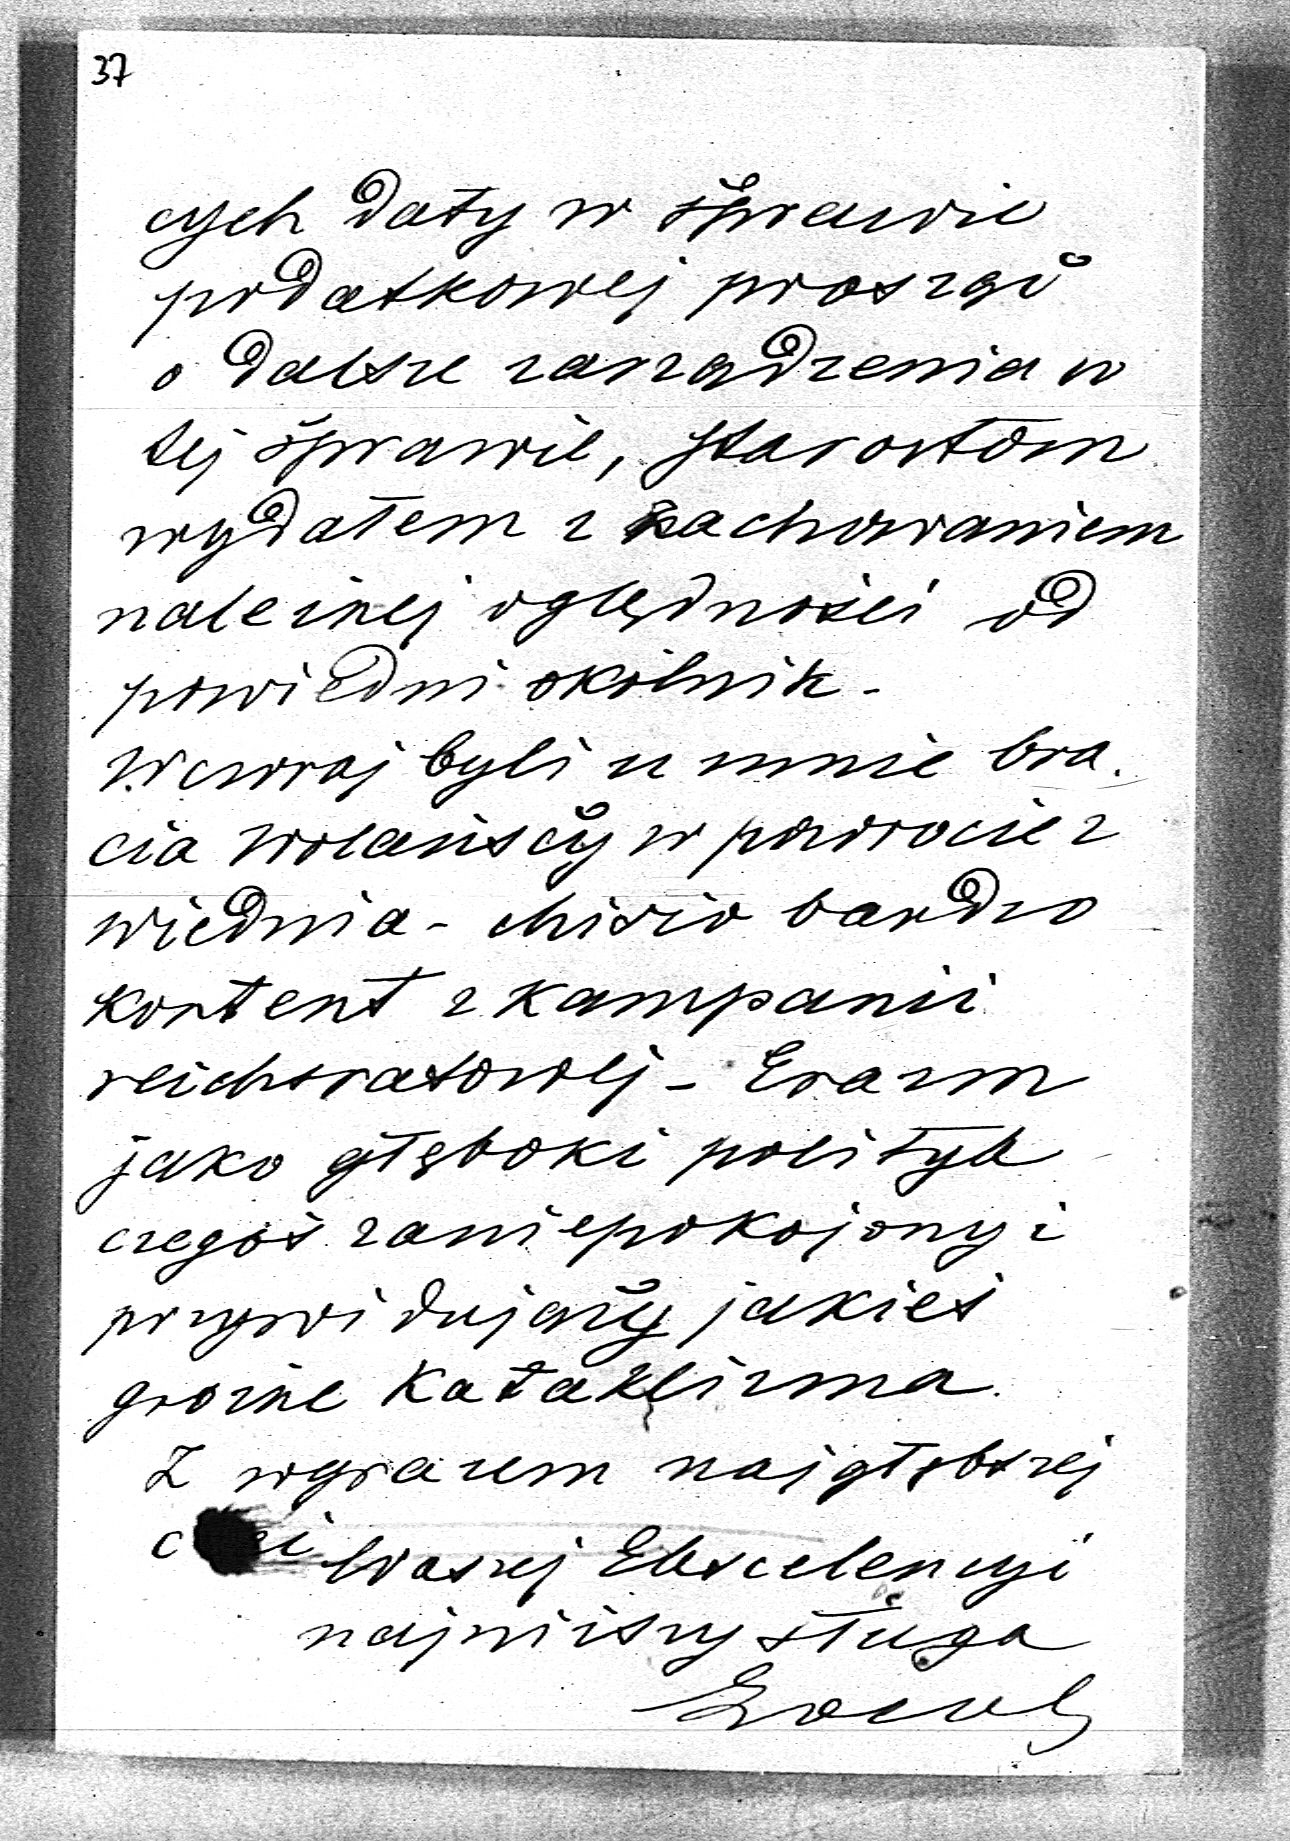 37
cych daty w sprawie
podatkowej prosząc
o dalsze zarządzenia w
tej sprawie, starostom
wydałem z zachowaniem
należnej oględności od
powiedni okólnik -
Wczoraj byli u mnie bra
cia Wolańscy w powrocie z
Wiednia - bardzo
kontent z kampanii
reichsratowej - Erazm
jako głęboki polityk
czegoś zaniepokojony i
przywidujący jakieś
groźne kataklizma.
Z wyrazem najgłębszej
czci Waszej Ekscelencyi
najniższy sługa